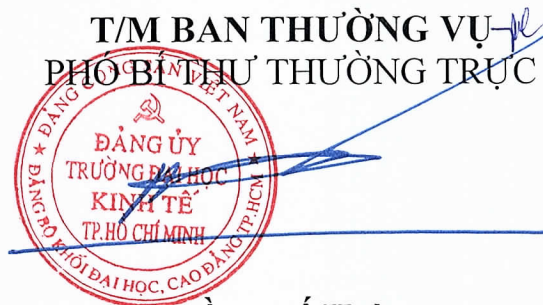 T/M BAN THƯỜNG VỤ
PHÓ BÍ THƯ THƯỜNG TRỰC
ĐẢNG CỘNG SẢN VIỆT NAM
ĐẢNG ỦY
TRƯỜNG ĐẠI HỌC
KINH TẾ
TP.HỒ CHÍ MINH
ĐẢNG BỘ KHỐI ĐẠI HỌC, CAO ĐẲNG TP.HCM